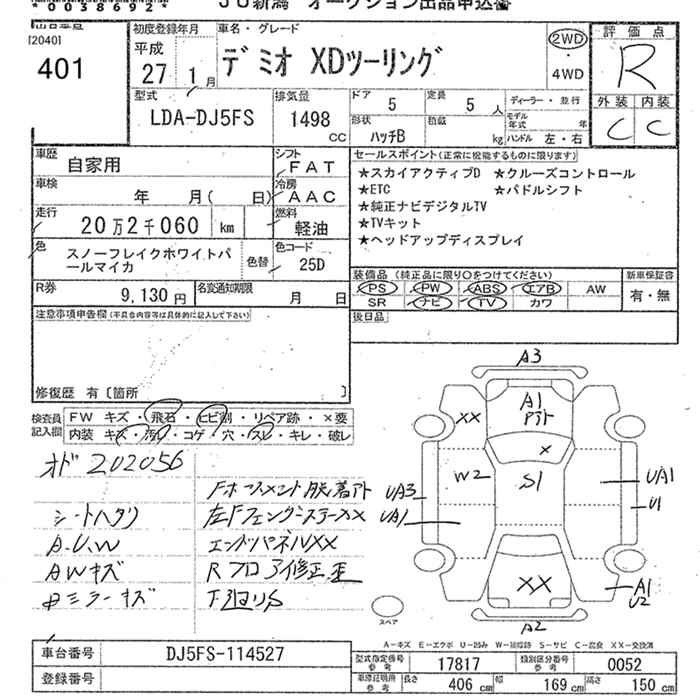 *0038692*
JU新潟 オークション出品申込書
[2040]
401
初度登録年月
平成
27 1月
車名・グレード
デミオ XDツーリング
2WD
・
4WD
評価点
R
外装 内装
C C
型式
LDA-DJ5FS
排気量
1498
CC
ドア
5
定員
5人
形状
ハッチB
積載
kg
ディーラー・並行
モデル年式 年
ハンドル 左・右
車歴
自家用
シフト
FAT
車検
年 月( 日)
冷房
AAC
走行
20万2千060 km
燃料
軽油
色
スノーフレイクホワイトパールマイカ
色替
色コード
25D
R券
9,130円
名変通知期限
月 日
セールスポイント(正常に機能するものに限ります)
★スカイアクティブD ★クルーズコントロール
★ETC ★パドルシフト
★純正ナビデジタルTV
★TVキット
★ヘッドアップディスプレイ
装備品(純正品に限り○をつけてください)
PS PW ABS エアB AW
SR ナビ TV カワ
新車保証書
有・無
後日品
注意事項申告欄(不具合内容等は具体的に記入して下さい)
修復歴 有〔箇所 〕
検査員記入欄
FW キズ・飛石・ヒビ割・リペア跡・×要
内装 キズ・汚れ・コゲ・穴・スレ・キレ・破レ
オド 202056
シートハタリ
A.U.W
AWキズ
Bミラーキズ
左Fフェンダーステー××
エンドパネル××
Rフロア修正歪
下廻りS
A3
A1
××
×
W2
S1
UA3
UA1
UA1
U1
××
A1
U2
A2
スペア
A-キズ E-エクボ U-凹み W-補修跡 S-サビ C-腐食 XX-交換済
車台番号
DJ5FS-114527
登録番号
型式指定番号 参考
17817
類別区分番号 参考
0052
車庫証明所 参考
長さ
406 cm
幅
169 cm
高さ
150 cm